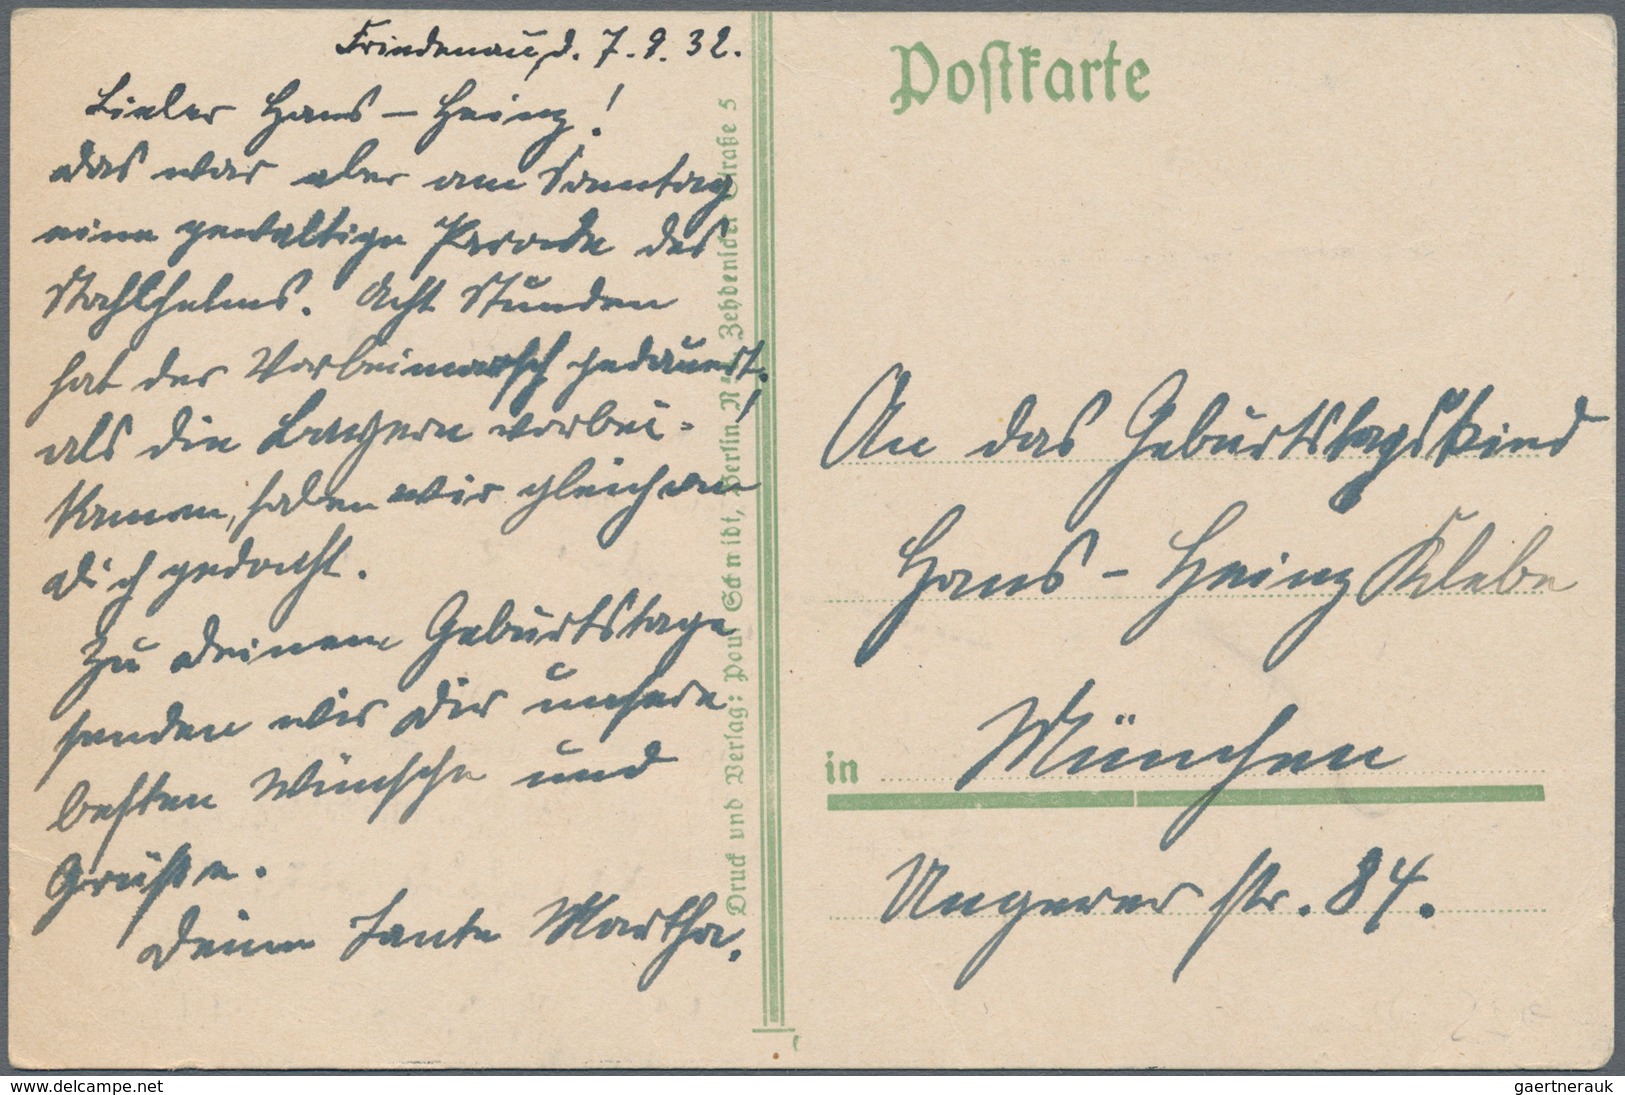 Friedenau, d. 7.9.32.
Lieber Hans-Heinz!
das war aber am Sonntag
eine gewaltige Parade des
Stahlhelms. Acht Stunden
hat der Vorbeimarsch gedauert!
als die Bayern vorbei-
kamen, haben wir gleich an
Dich gedacht.
Zu Deinem Geburtstage
senden wir Dir unsere
besten Wünsche und
Grüße.
Deine Tante Martha.
Druck und Verlag: Paul Schmidt, Berlin N, Zehdenicker Straße 5
Postkarte
An das Geburtstagskind
Hans-Heinz Klebe
in München
Ungererstr. 84.
delcampe.net
gaertnerauk